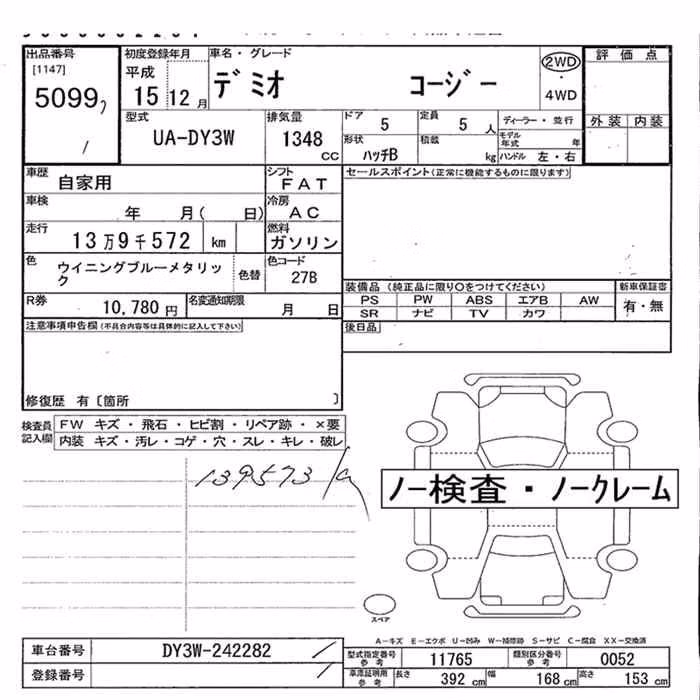 出品番号
[1147]
5099ﾌ
/
初度登録年月
平成
15 12 月
車名・グレード
デミオ コージー
2WD
・
4WD
評価点
外装 内装
型式
UA-DY3W
排気量
1348
CC
ドア
5
定員
5 人
ディーラー・並行
形状
ハッチB
積載
kg
モデル年式 年
ハンドル 左・右
車歴
自家用
シフト
FAT
セールスポイント(正常に機能するものに限ります)
車検
年 月( 日)
冷房
AC
走行
13万9千572 km
燃料
ガソリン
色
ウイニングブルーメタリック
色替
色コード
27B
装備品 (純正品に限り○をつけてください)
新車保証書
PS PW ABS エアB AW
有・無
SR ナビ TV カワ
R券
10,780 円
名変通知期限
月 日
後日品
注意事項申告欄(不具合内容等は具体的に記入して下さい)
修復歴 有〔箇所 〕
検査員記入欄
FW キズ・飛石・ヒビ割・リペア跡・×要
内装 キズ・汚レ・コゲ・穴・スレ・キレ・破レ
139573
ノー検査・ノークレーム
スペア
A-キズ E-エクボ U-凹み W-補修跡 S-サビ C-腐食 XX-交換済
車台番号
DY3W-242282 /
登録番号
/
型式指定番号
参考
11765
類別区分番号
参考
0052
車庫証明用
参考
長さ 392 cm 幅 168 cm 高さ 153 cm